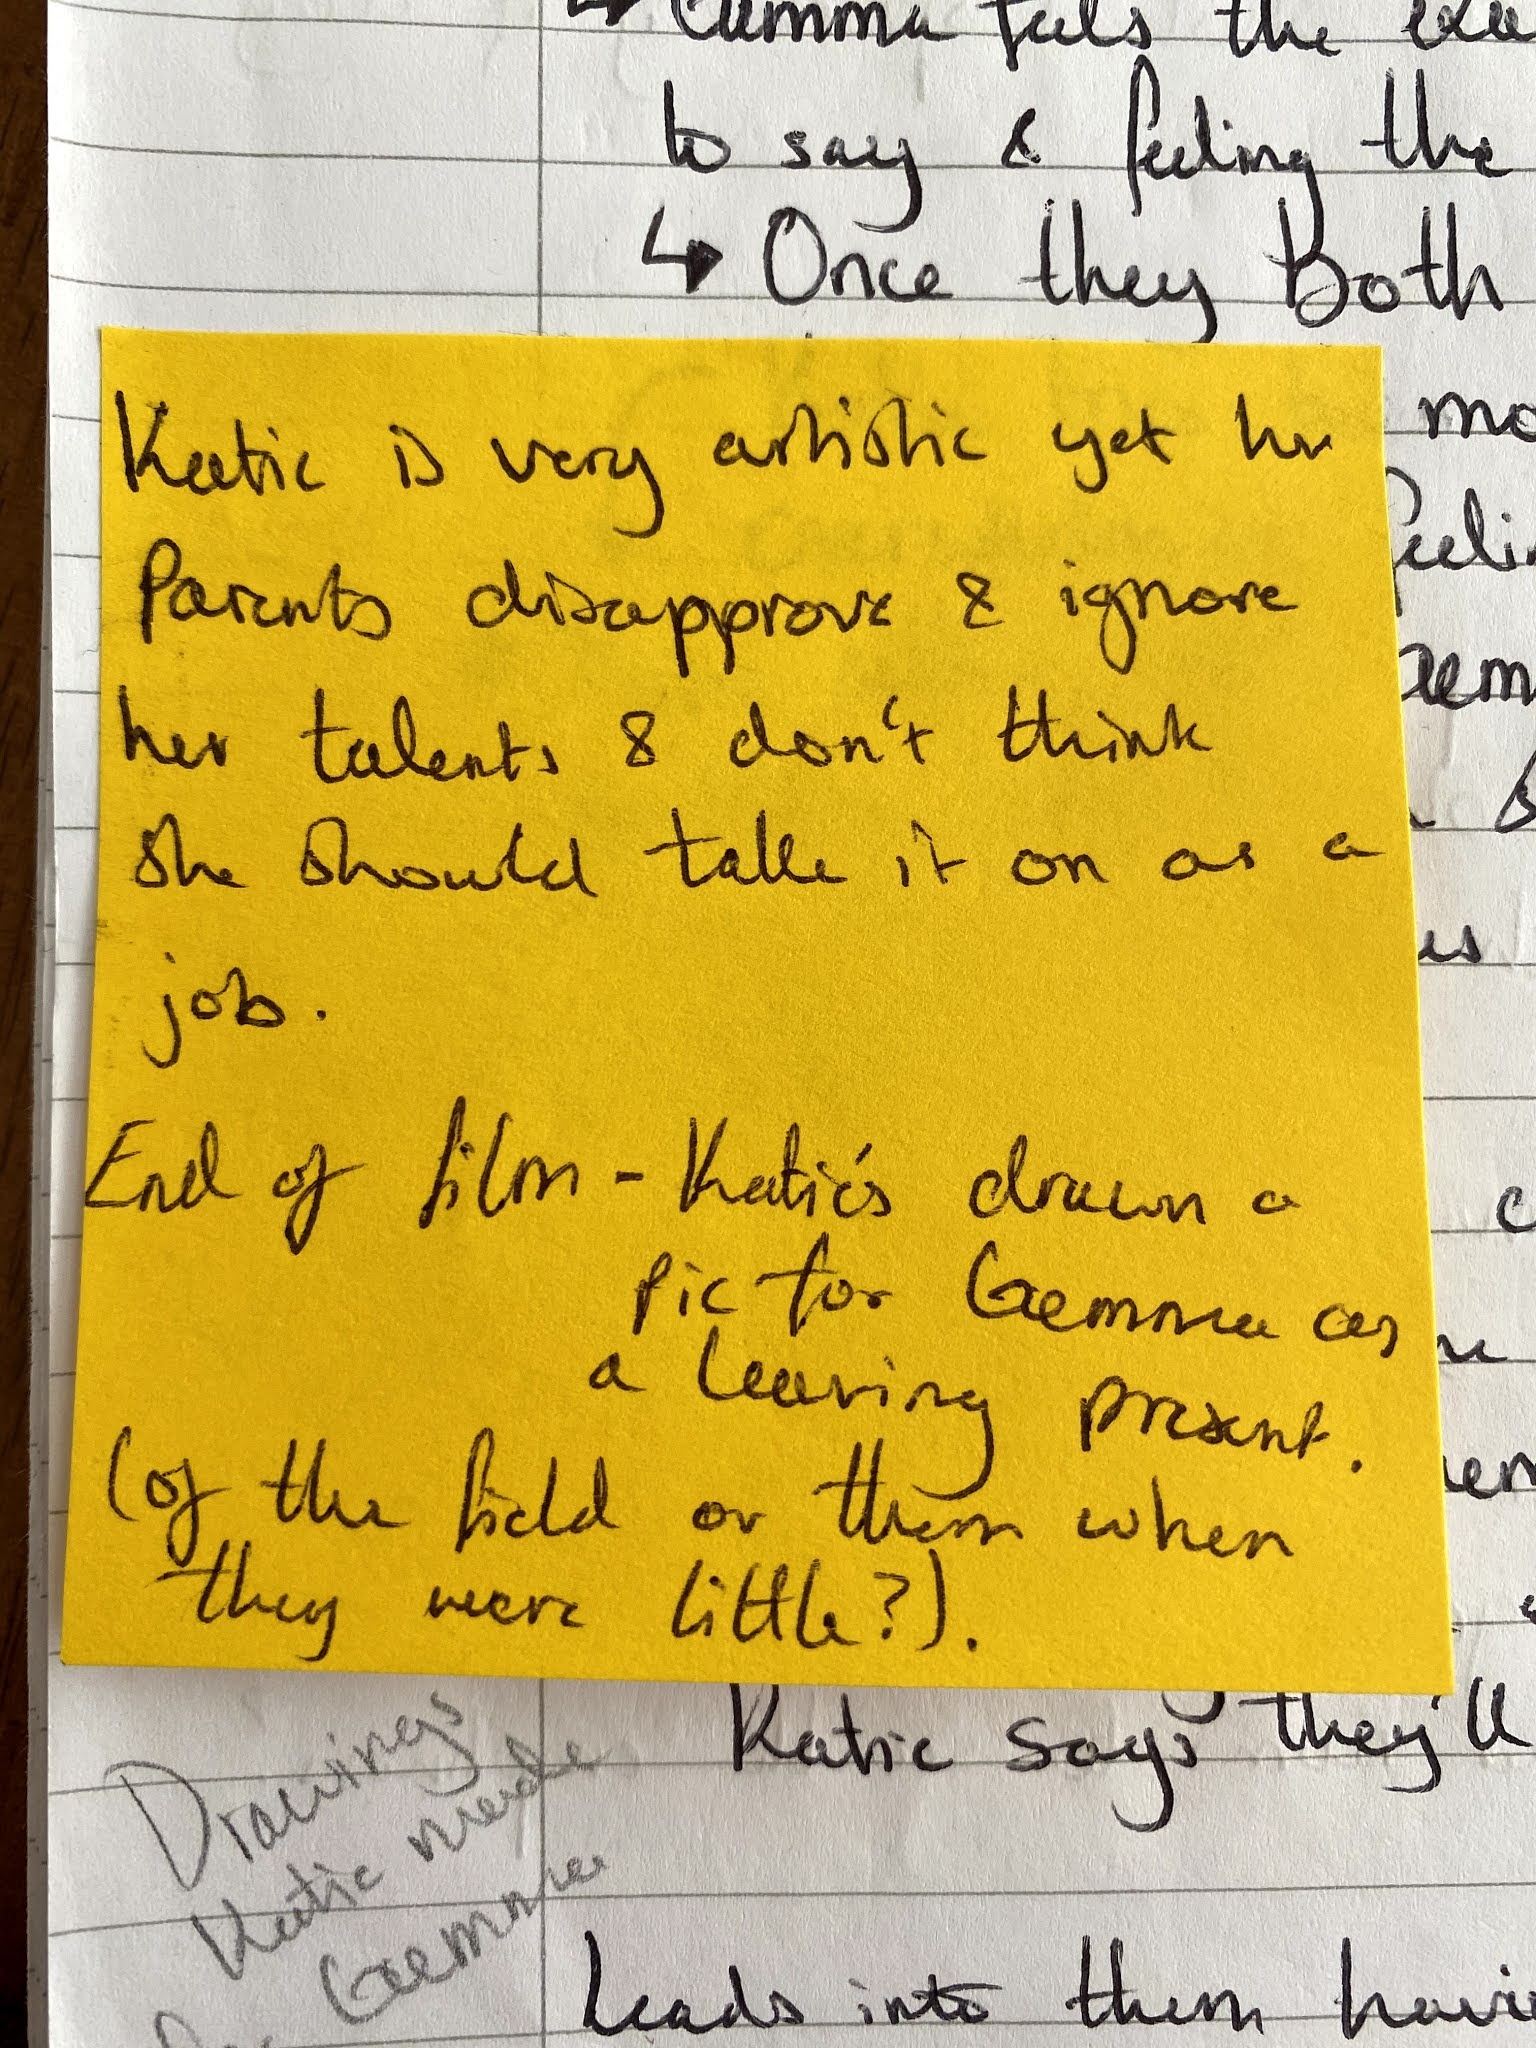 Gemma feels the
to say & feeling the
↳ Once they both
Katie is very artistic yet her
Parents disapprove & ignore
her talents & don't think
she should take it on as a
job.
End of film - Katie's drawn a
pic for Gemma as
a leaving present.
(of the field or them when
they were little?).
Katie says they'll
Drawings
Katie made
Gemma
Leads into them